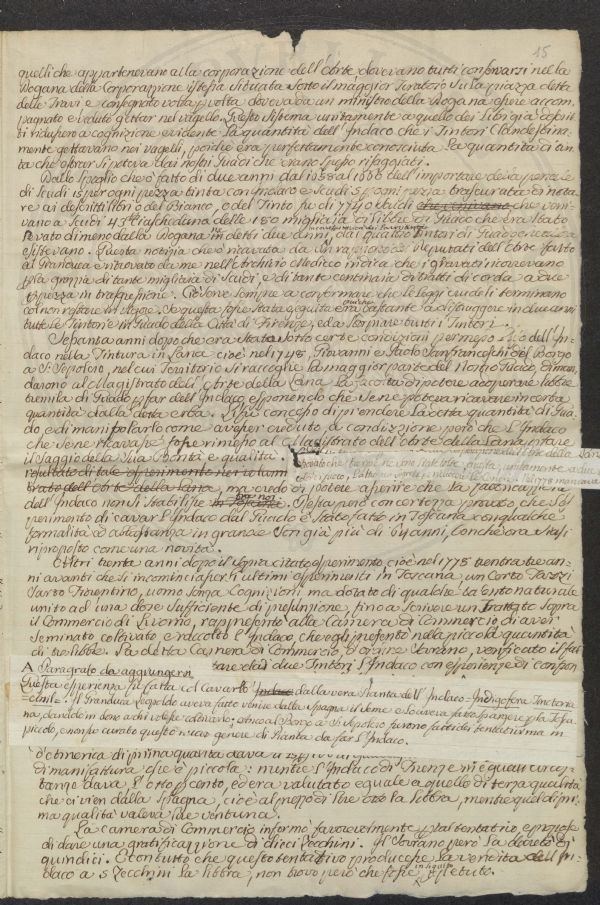 15
quelli che appartenevano alla corporazione dell'Arte dovevano tutti conservarsi nella
Dogana della Corporazione istessa situata sotto il maggior Territorio sulla piazza detta
delle Travi e consegnato volta p volta doveva da un ministro della Dogana essere accom-
pagnato e veduto gettar nel vagello. Questo sistema unitamente a quello dei libri già
ti ridussero a cognizione evidente la quantità dell'Indaco che i Tintori clandestina-
mente gettavano nei vagelli, poiché era perfettamente conosciuta la quantità di tin-
ta che estrar si poteva dai nostri Guadi che erano spesso risaggiati.
Dallo spoglio che ò fatto di due anni dal 1658 al 1660 dell'importare della penale
di Scudi 15 per ogni pezza tinta con Indaco e Scudi 5 p ogni pezza trascurata di nota-
re ai libro del Bianco, o del Tinto fu di 7740 Scudi che
vano a Scudi 43 ciascheduna delle 180 migliaja di libbre di Guado che era stato
levato di meno dalla Dogana in detti due anni, dai Tintori di Guado
esistevano. Questa notizia che ò ricavata da Deputati dell'Arte fatto
al Granduca e ritrovato da me nell'Archivio Mediceo indica che i gravati ricorrevano
p la grazia di tante migliaja di Scudi, e di tante centinaia di tratti di corda a due
p pezza in trasgressione. Ciò serve sempre a confermare che le Leggi crudeli terminano
col non restare in vigore. Se questa fosse stata eseguita era bastante a distruggere in due anni
tutte le Tintorie in Guado della Città di Firenze, ed a storpiare tutti i Tintori.
Sessanta anni dopo che era stato sotto certe condizioni permesso l'uso dell'In-
daco nella Tintura in Lana cioè nel 1748, Giovanni e Paolo Gianfranceschi del Borgo
a S. Sepolcro, nel cui Territorio si raccoglie la maggior parte del nostro Guado diman-
darono al Magistrato dell'Arte della Lana la facoltà di potere adoperare libbre
tremila di Guado p far dell'Indaco esponendo che se ne poteva ricavare in certa
quantità dalla detta erba. Li fu concesso di prendere la detta quantità di Gua-
do, e di manipolarlo come avesser creduto a condizione però che l'Indaco
che se ne ricavasse fosse rimesso al Magistrato dell'Arte della Lana p fare
il saggio della sua bontà e qualità.
resultato di tale esperimento
trato dell'Arte della Lana, ma credo di potere asserire che la fabbricazione
dell'Indaco non si stabilisse in Toscana. Resta però con certezza provato che l'es-
perimento di cavar l'Indaco dal Guado è stato fatto in Toscana con qualche
formalità ed abbastanza in grande son già più di 64 anni, sonché ora siasi
riproposto come una novità.
Altri trenta anni dopo il sopra citato esperimento cioè nel 1778 trentatre an-
ni avanti che si incominciassero gli ultimi esperimenti in Toscana, un certo
Sarto Fiorentino, uomo senza Cognizioni ma dotato di qualche talento naturale
unito ad una dose sufficiente di presunzione, fino a scrivere un Trattato sopra
il Commercio di Livorno, rappresentò alla Camera di Commercio di aver
seminato coltivato e raccolto l'Indaco, che egli presentò nella piccola quantità
di tre libbre. La detta Camera di Commercio, d'ordine Sovrano, verificato il fat-
A Paragrafo da aggiungersi
tare dai due Tintori l'Indaco con esperienze di confron
Questa esperienza fu fatta col cavarlo Indaco dalla vera Pianta dell'Indaco Indigofera Tinctoria
Il Granduca Leopoldo aveva fatto venire dalla Spagna il seme e lo aveva fatto spargere p la Tosca-
na, dandolo in dono a chi volesse coltivarlo: ebbero al Borgo a S. Sepolcro furono fatti dei tentativi ma in
piccolo, e non fu curato questo nuovo genere di Pianta da far l'Indaco.
d'America di prima qualità dava
di manifattura che è piccola: mentre l'Indaco di Firenze in eguali circos-
tanze dava l'otto p cento, ed era valutato eguale a quello di terza qualità
che ci vien dalla Spagna, cioè al prezzo di lire otto la libbra, mentre quel di pri-
ma qualità valeva lire ventuna.
La camera di Commercio informò favorevolmente p tal tentativo, e propose
di dare una gratificazione di dieci Zecchini. Il Sovrano però la decretò di
quindici. E con tutto che questo tentativo producesse la vendita dell'In-
daco a 5 Zecchini la libbra, non trovo però che fosse in seguito ripetuto.